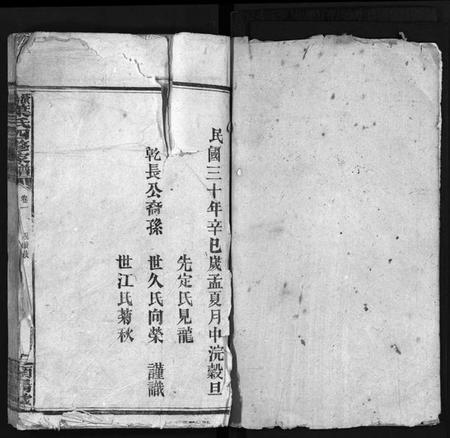 民國三十年辛巳歲孟夏月中浣穀旦
先定氏見龍
乾長公裔孫 世久氏向榮 謹識
世江氏菊秋
葉氏四修家譜
卷一
南陽堂